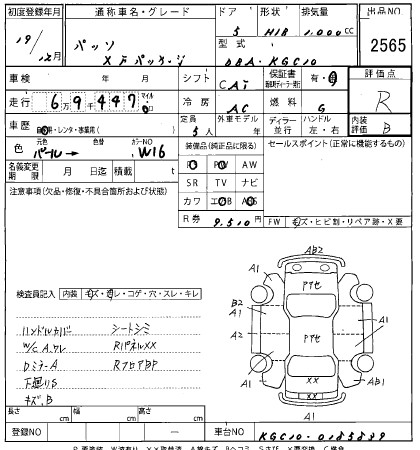 初度登録年月 通称車名・グレード ドア 形状 排気量 出品NO
19/12月 パッソ 5 H/B 1,000cc 2565
X Fパッケージ 型式 DBA-KGC10
車検 年 月 シフト CAT 保証書 有・無 評価点
走行 6万9千447 冷房 AC 燃料 G R
車歴 自家用・レンタ・事業用( ) 定員 5人 外車モデル 年 ディーラー 並行 ハンドル 左・右 内装評価 B
色 元色 パール 色替 カラーNO W16 装備品(純正品に限る) セールスポイント(正常に機能するもの)
PS PW AW
名義変更期限 月 日迄 積載 t SR TV ナビ
注意事項(欠品・修復・不具合箇所および状態) カワ エアB ABS
R券 9,510円 FW キズ・ヒビ割・リペア跡・X要
AB2
A1 A1
アテセ
B2
A1 A1
アテセ
検査員記入 内装 キズ・汚レ・コゲ・穴・スレ・キレ
A1
ハンドルカバー シートシミ
W/C A,ワレ RパネルXX
Dミラー A RフロアBP
下廻りS XX
A1 AB1
キズ、B A1
長さ cm 幅 cm 高さ cm
登録NO ― 車台NO KGC10-0185839